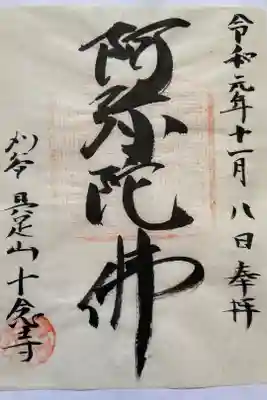 令和元年十一月八日奉拝
阿弥陀佛
刈谷 具足山十念寺